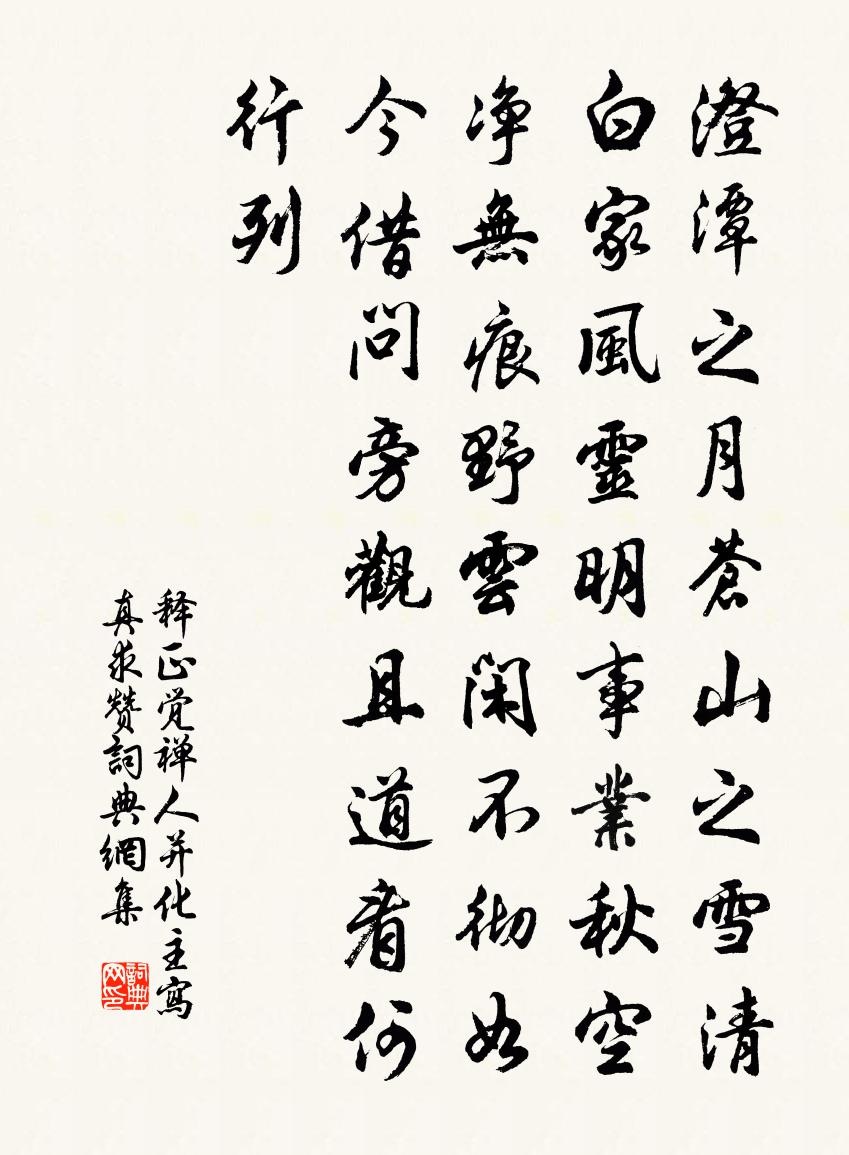 澄潭之月蒼山之雪清
白家風靈明事業秋空
净無痕野雲閑不彻如
今借问旁觀且道看何
行列
释正觉禅人并化主寫
真求赞詞典網集
詞典网印